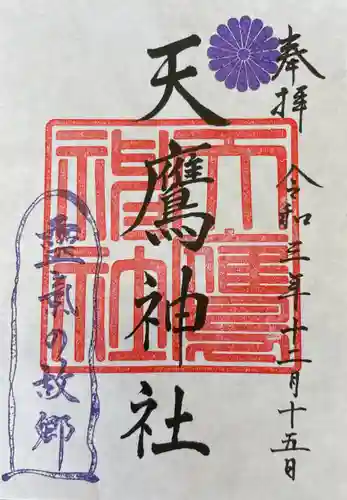 奉拝
令和三年十二月十五日
天鷹神社
天鷹神社
霊気の故郷